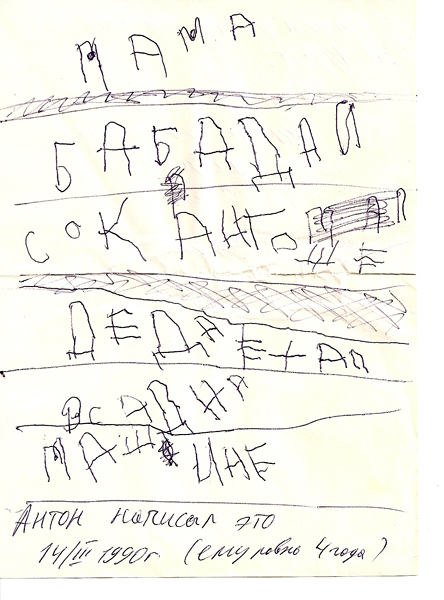 МАМА
БАБАДАЙ
СОК АНТОШЕ
ДЕДА ЕХАЛ
МАШИНЕ
Антон написал это
14/III 1990г. (ему ровно 4 года)